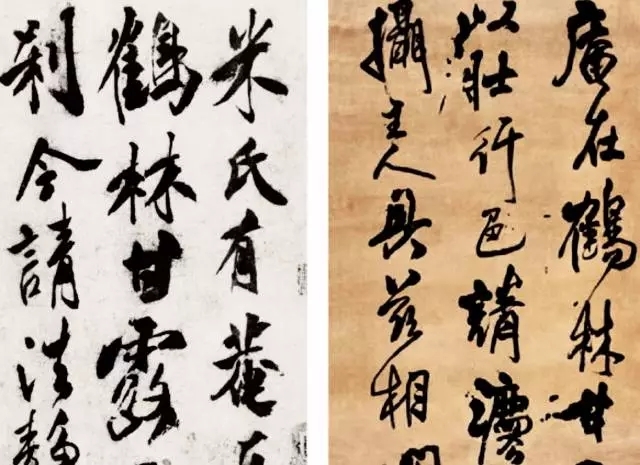 米氏有菴在
鶴林甘露
刹今請法
菴在鶴林甘
以壯行色請
攝主人具茲相